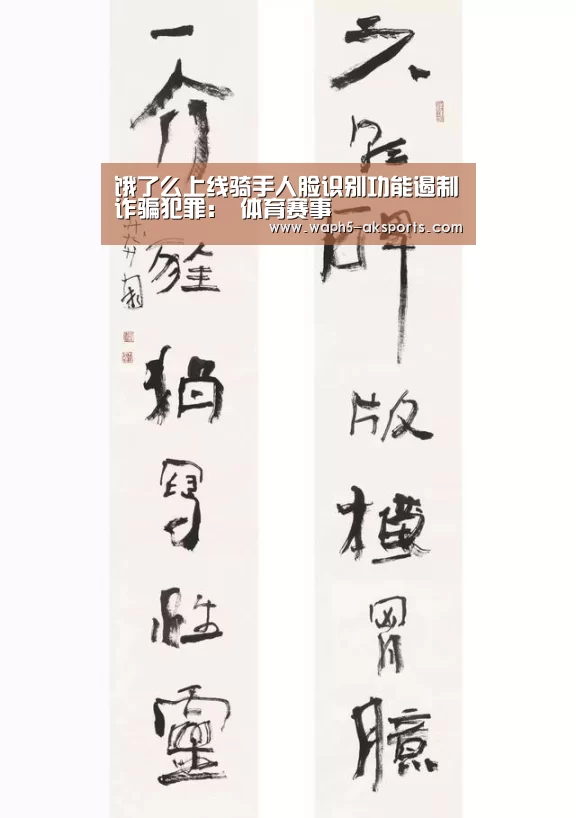 饿了么上线骑手人脸识别功能遏制
诈骗犯罪： 体育赛事
www.waph5-aksports.com
碑版橫胷臆
一介獨寫性靈